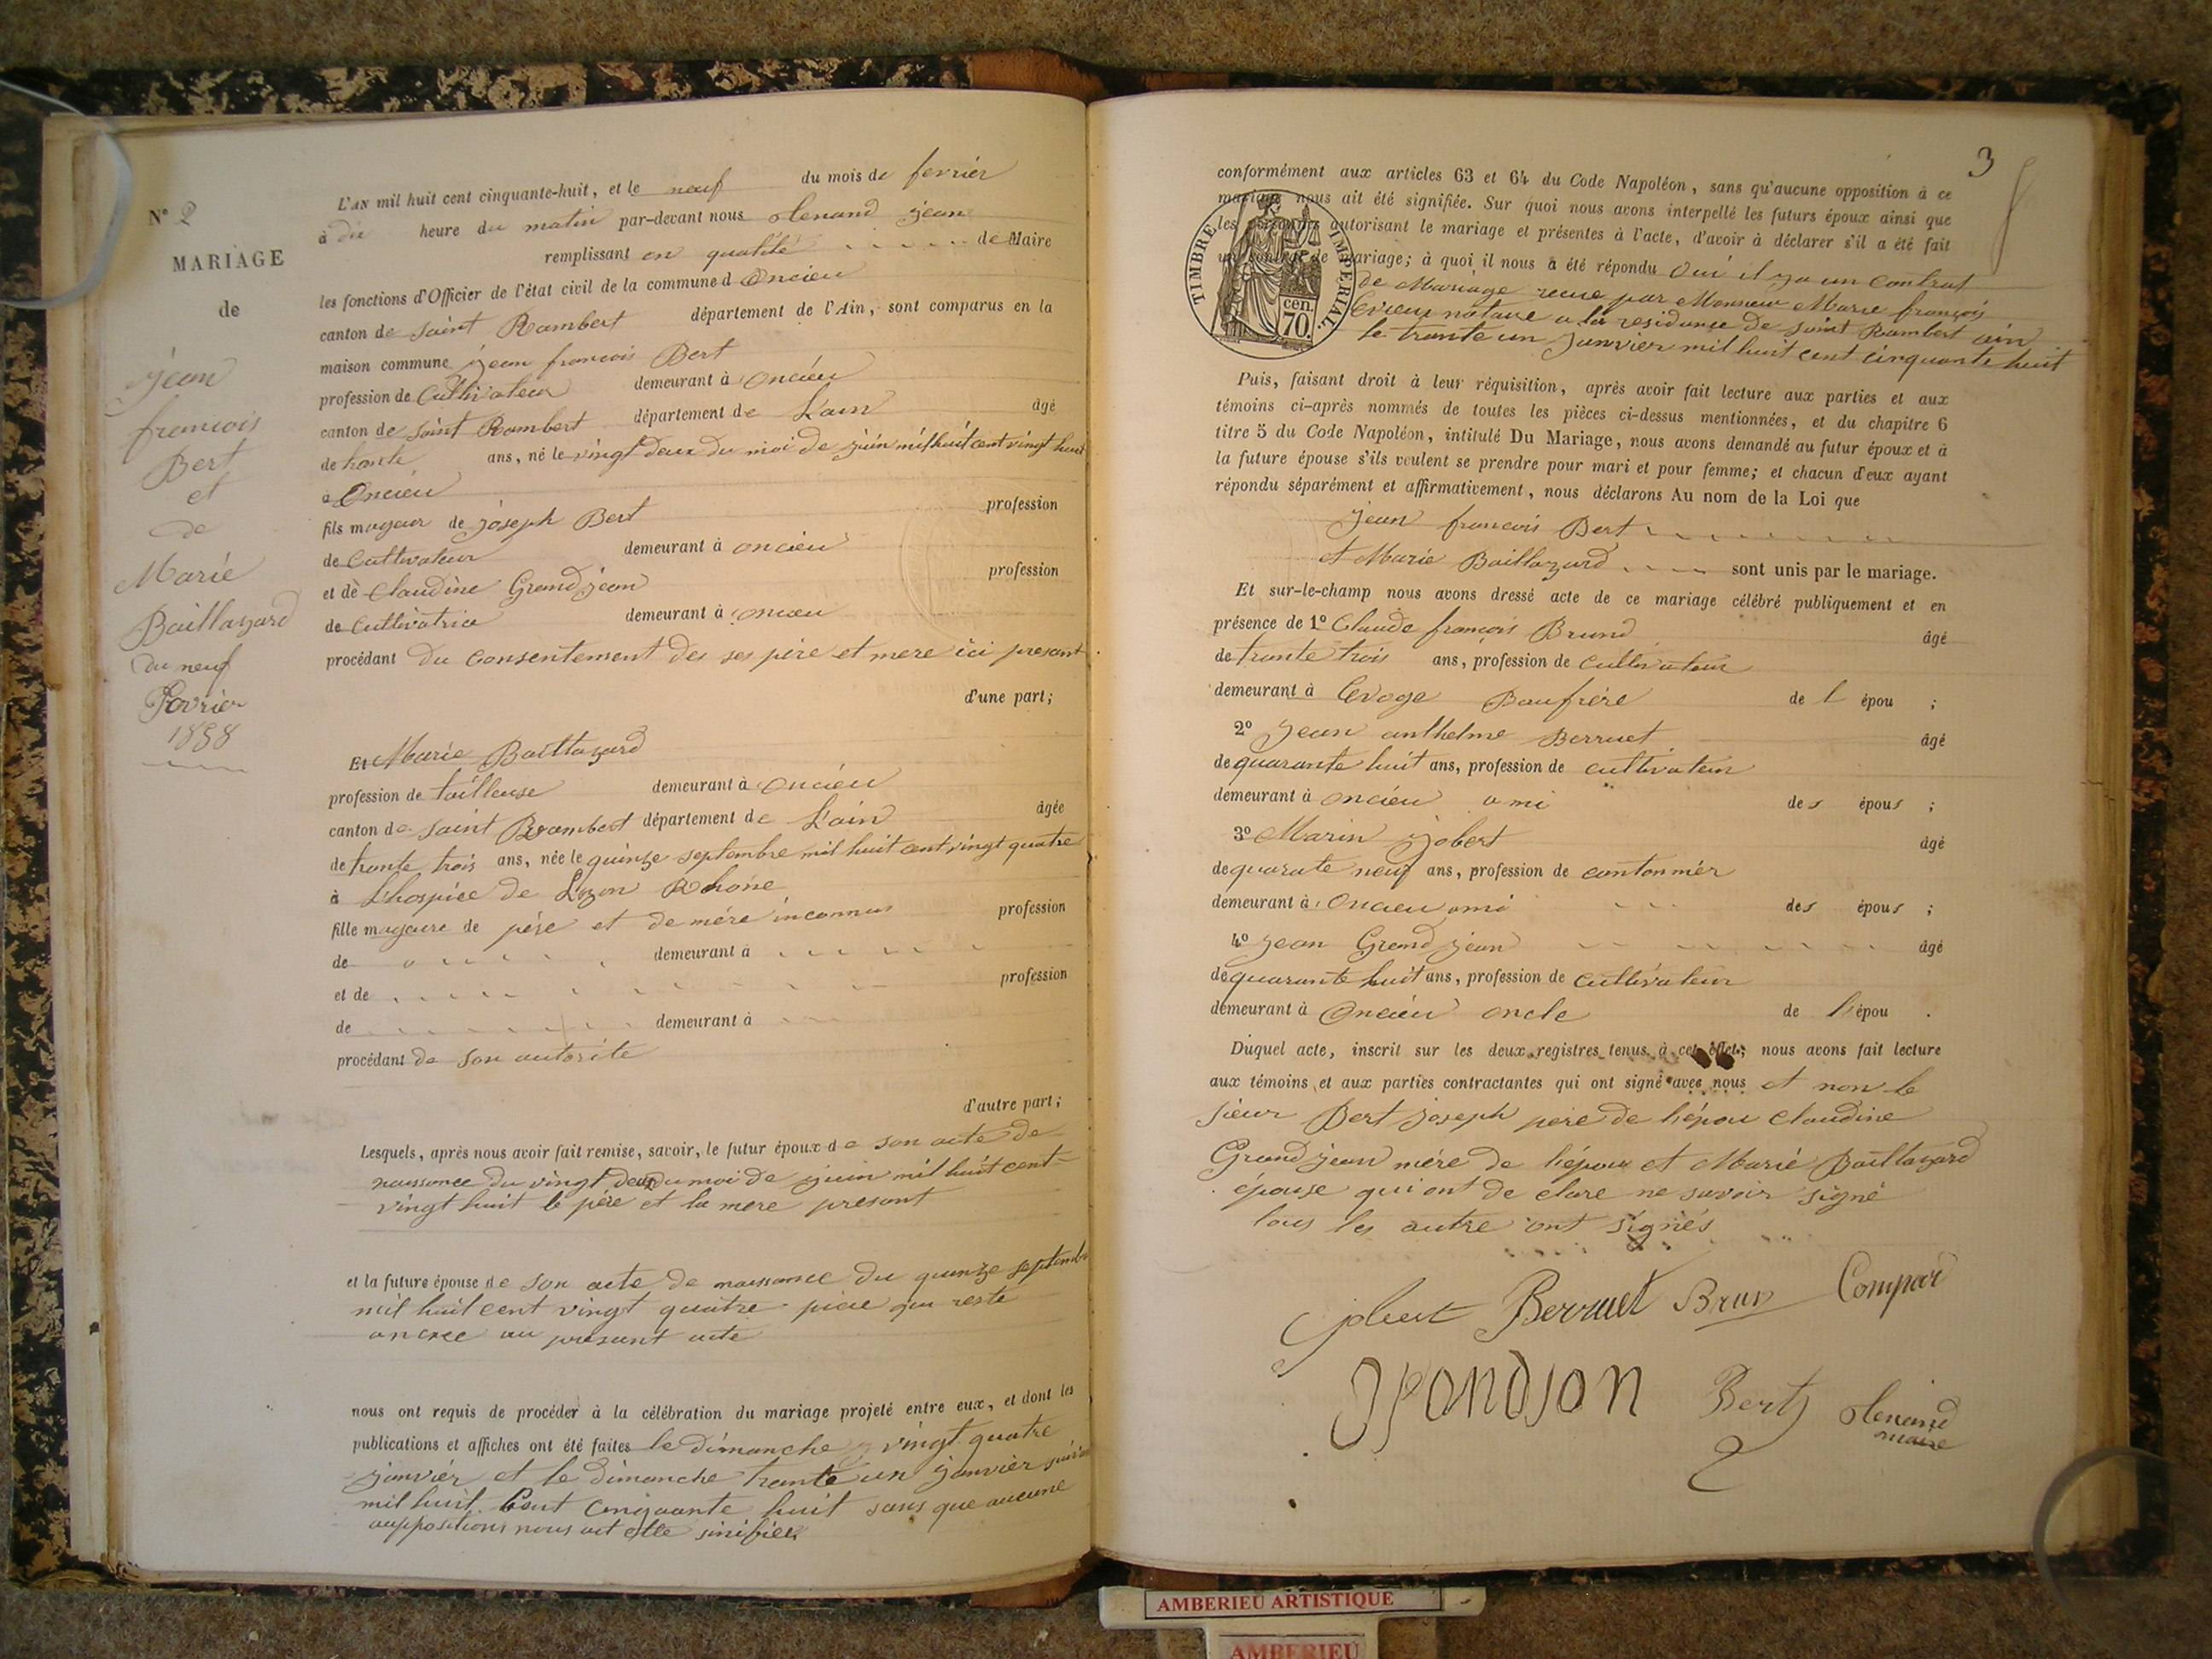 N° 2
MARIAGE
de
jean
francois
Bert
et
de
Marie
Baillazard
du neuf
Fevrier
1858
L'AN mil huit cent cinquante-huit, et le neuf du mois de fevrier
à dix heure du matin par-devant nous jean
remplissant en qualité de Maire
les fonctions d'Officier de l'état civil de la commune d Oncieu
canton de saint Rambert département de l'Ain, sont comparus en la
maison commune jean francois Bert
profession de Cultivateur demeurant à oncieu
canton de saint Rambert département de L'ain âgé
de trente ans, né le vingt deux du moi de juin mil huit cent vingt huit
à Oncieu
fils mageur de joseph Bert profession
de Cultivateur demeurant à oncieu
et de Claudine Grandjean profession
de Cultivatrice demeurant à oncieu
procédant du consentement des ses père et mere ici presant
d'une part;
Et Marie Baillazard
profession de tailleuse demeurant à oncieu
canton de saint Rambert département de L'ain âgée
de trente trois ans, née le quinze septembre mil huit cent vingt quatre
à L'hospice de Lyon Rhone
fille mageure de père et de mére inconnus profession
de demeurant à
et de profession
de demeurant à
procédant de son autorite
d'autre part;
Lesquels, après nous avoir fait remise, savoir, le futur époux de son acte de
naissance du vingt deux du moi de juin mil huit cent
vingt huit le père et la mere presant
et la future épouse de son acte de naissance du quinze septembre
mil huit cent vingt quatre piece qui reste
anexee au presant acte
nous ont requis de procéder à la célébration du mariage projeté entre eux, et dont les
publications et affiches ont été faites le dimanche vingt quatre
janvier et le dimanche trante un janvier
mil huit Cent cinquante huit sans que aucune
auppositions nous ait este sinifiée
3
conformément aux articles 63 et 64 du Code Napoléon, sans qu'aucune opposition à ce
mariage nous ait été signifiée. Sur quoi nous avons interpellé les futurs époux ainsi que
les personnes autorisant le mariage et présentes à l'acte, d'avoir à déclarer s'il a été fait
un contrat de mariage; à quoi il nous a été répondu Oui il ya un contrat
de Mariage recue par Monsieur Marie françois
notaire a la residance de saint Rambert ain
le trante un janvier mil huit cent cinquante huit
TIMBRE IMPERIAL.
cen.
70.
Puis, faisant droit à leur réquisition, après avoir fait lecture aux parties et aux
témoins ci-après nommés de toutes les pièces ci-dessus mentionnées, et du chapitre 6
titre 5 du Code Napoléon, intitulé Du Mariage, nous avons demandé au futur époux et à
la future épouse s'ils veulent se prendre pour mari et pour femme; et chacun d'eux ayant
répondu séparément et affirmativement, nous déclarons Au nom de la Loi que
jean francois Bert
et Marie Baillazard sont unis par le mariage.
Et sur-le-champ nous avons dressé acte de ce mariage célébré publiquement et en
présence de 1° Claude françois Brund âgé
de trante trois ans, profession de cultivateur
demeurant à Evoge Baufrére de l épou ;
2° jean anthelme Berruet âgé
de quarante huit ans, profession de cultivateur
demeurant à oncieu ami des épous ;
3° Marin jobert âgé
de quarate neuf ans, profession de cantonnier
demeurant à Oncieu ami des épous ;
4° jean Grandjean âgé
de quarante huit ans, profession de cultivateur
demeurant à Oncieu oncle de l'épou .
Duquel acte, inscrit sur les deux registres tenus à cet effet, nous avons fait lecture
aux témoins et aux parties contractantes qui ont signé avec nous et non le
sieur Bert joseph pere de l'épou Claudine
Grandjean mére de l'épou et Marie Baillazard
épouse qui ont de clare ne savoir signé
tous les autre ont signés
jobert Berruet Brun
Grandjon Bert
maire
AMBERIEU ARTISTIQUE
AMBERIEU